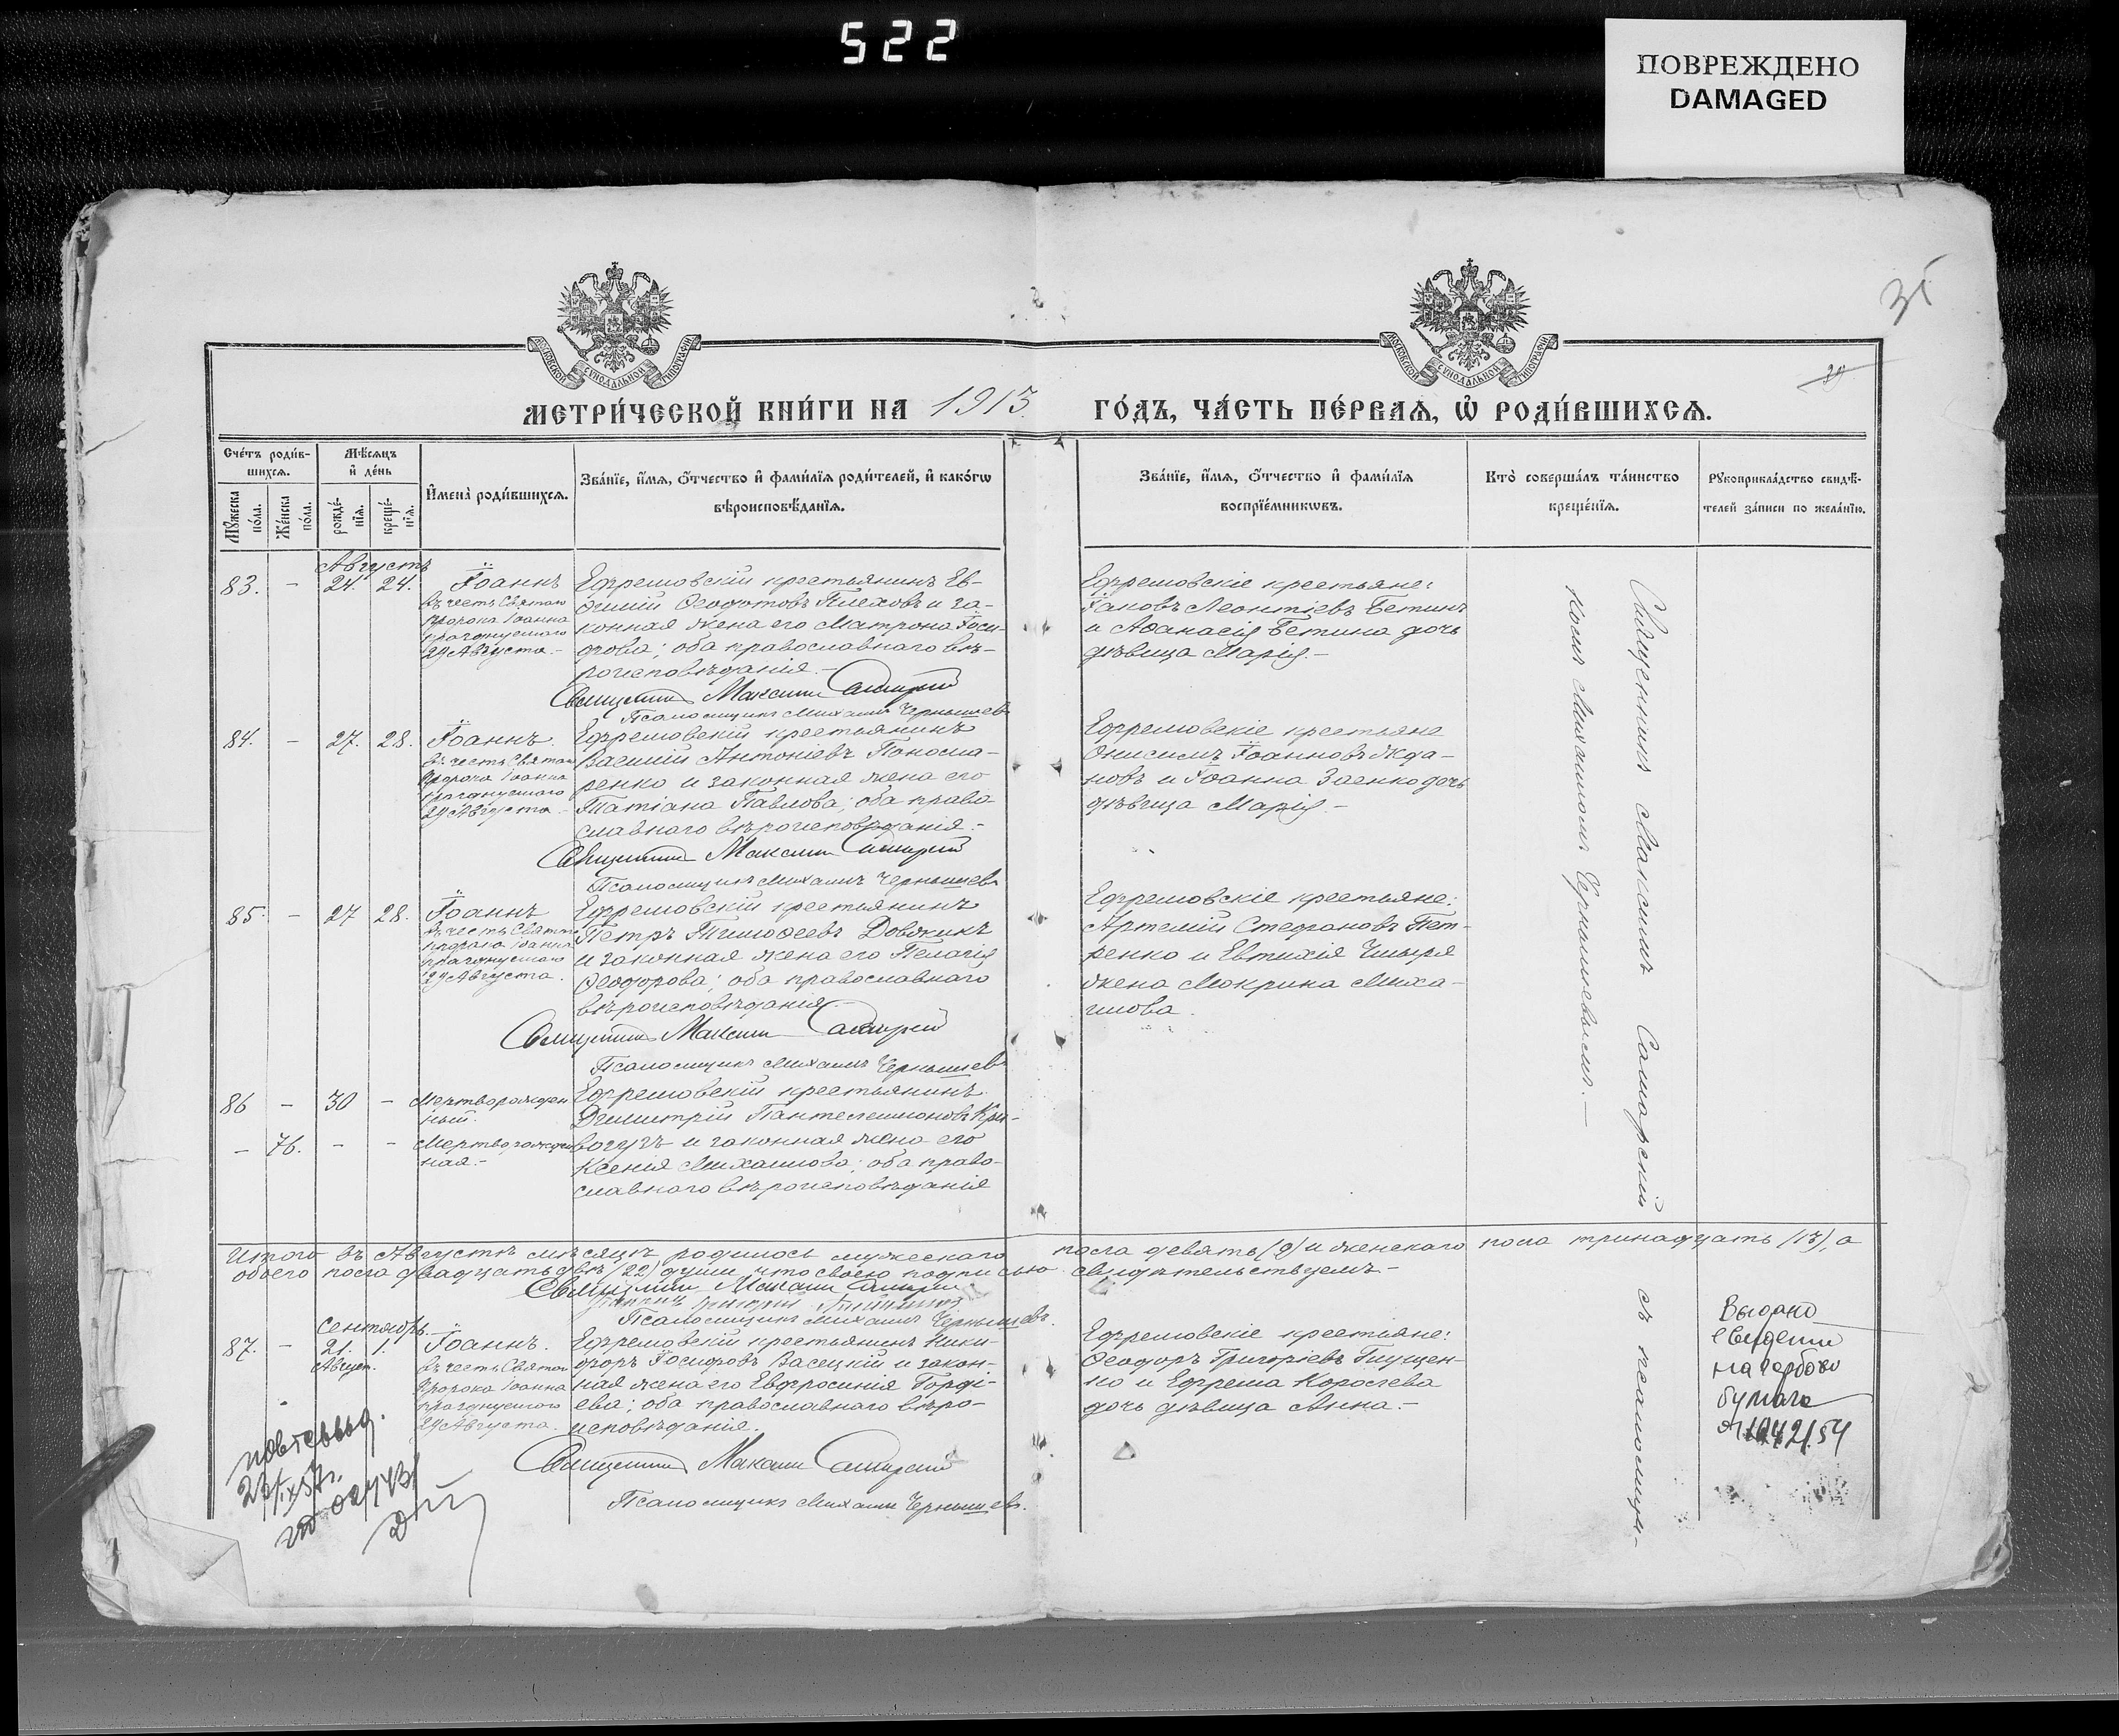 522
ПОВРЕЖДЕНО
DAMAGED
31
29
МОСКОВСКОЙ СѴНОДАЛЬНОЙ ТИПОГРАФІИ
МОСКОВСКОЙ СѴНОДАЛЬНОЙ ТИПОГРАФІИ
МЕТРИ́ЧЕСКОЙ КНИ́ГИ НА 1913. ГО́ДЪ, ЧА́СТЬ ПЕ́РВАѦ, Ѡ҆ РОДИ́ВШИХСѦ.
Сче́тъ роди́в-
шихсѧ.
Мꙋ́жеска
по́ла.
Же́нска
по́ла.
Мѣ́сѧцъ
и҆ де́нь
рожде́-
нїѧ.
креще́-
нїѧ.
И҆мена̀ роди́вшихсѧ.
Зва́нїе, и҆́мѧ, ѻ҆́тчество и҆ фами́лїѧ роди́телей, и҆ како́гѡ
вѣроисповѣ́данїѧ.
Зва́нїе, и҆́мѧ, ѻ҆́тчество и҆ фами́лїѧ
воспрїе́мникѡвъ.
Кто̀ соверша́лъ та́инство
креще́нїѧ.
Рꙋкоприкла́дство свидѣ́-
телей за́писи по жела́нїю.
Августъ
83. – 24. 24. Іоаннъ
въ честь Святаго
Пророка Іоанна
празднуемаго
29 Августа.–
Ефремовскій крестьянинъ Ев-
ѳимій Ѳеодотовъ Плеховъ и за-
конная жена его Матрона Іоси-
фова; оба православнаго вѣ-
роисповѣданія.–
Священникъ Максимъ Самарскій
Псаломщикъ Михаилъ Чернышевъ
Ефремовскіе крестьяне:
Іаковъ Леонтіевъ Бетинъ
и Аѳанасія Бетина дочь
дѣвица Марія.–
84. – 27. 28. Іоаннъ.
въ честь Святаго
Пророка Іоанна
празднуемаго
29 Августа.–
Ефремовскій крестьянинъ
Василій Антоніевъ Понома-
ренко и законная жена его
Татіана Павлова; оба право-
славнаго вѣроисповѣданія.–
Священникъ Максимъ Самарскій
Псаломщикъ Михаилъ Чернышевъ
Ефремовскіе крестьяне
Онисимъ Іоанновъ Жда-
новъ и Іоанна Заенко дочь
дѣвица Марія.–
85. – 27 28. Іоаннъ
въ честь Святаго
пророка Іоанна
празднуемаго
29 Августа.
Ефремовскій крестьянинъ
Петръ Тимоѳеевъ Довжикъ
и законная жена его Пелагія
Ѳеодорова; оба православнаго
вѣроисповѣданія.–
Священникъ Максимъ Самарскій
Псаломщикъ Михаилъ Чернышевъ
Ефремовскіе крестьяне:
Артемій Стефановъ Пет-
ренко и Евтихія Чмыря
жена Мокрина Миха-
илова.
86 – 30 – Мертворожден
ный.
– 76. – – Мертворожден
ная.–
Ефремовскій крестьянинъ
Димитрій Пантелеимоновъ Кри-
вогузъ и законная жена его
Ксенія Михаилова; оба право-
славнаго вѣроисповѣданія
Священникъ Максимъ Самарскій
съ псаломщи-
комъ Михаиломъ Чернышевымъ.–
Итого въ Августѣ мѣсяцѣ родилось мужескаго пола девять (9) и женскаго пола тринадцать (13), а
обоего пола двадцать двѣ (22) души, что своею подписью свидѣтельствуемъ.–
Священникъ Максимъ Самарскій
Псаломщикъ Михаилъ Чернышевъ.
Сентябрь.
87. – 21. 1. Іоаннъ.
Август.
въ честь Святаго
Пророка Іоанна
празднуемаго
29 Августа.
Ефремовскій крестьянинъ Ники-
форъ Іосифовъ Васецкій и закон-
ная жена его Евфросинія Горді-
ева; оба православнаго вѣро-
исповѣданія.
Священникъ Максимъ Самарскій
Псаломщикъ Михаилъ Чернышевъ.
Ефремовскіе крестьяне:
Ѳеодоръ Григоріевъ Глущен-
ко и Ефрема Коросева
дочь дѣвица Анна.–
Выдано
свидетел
на гербово
бумаге
повт свыд.